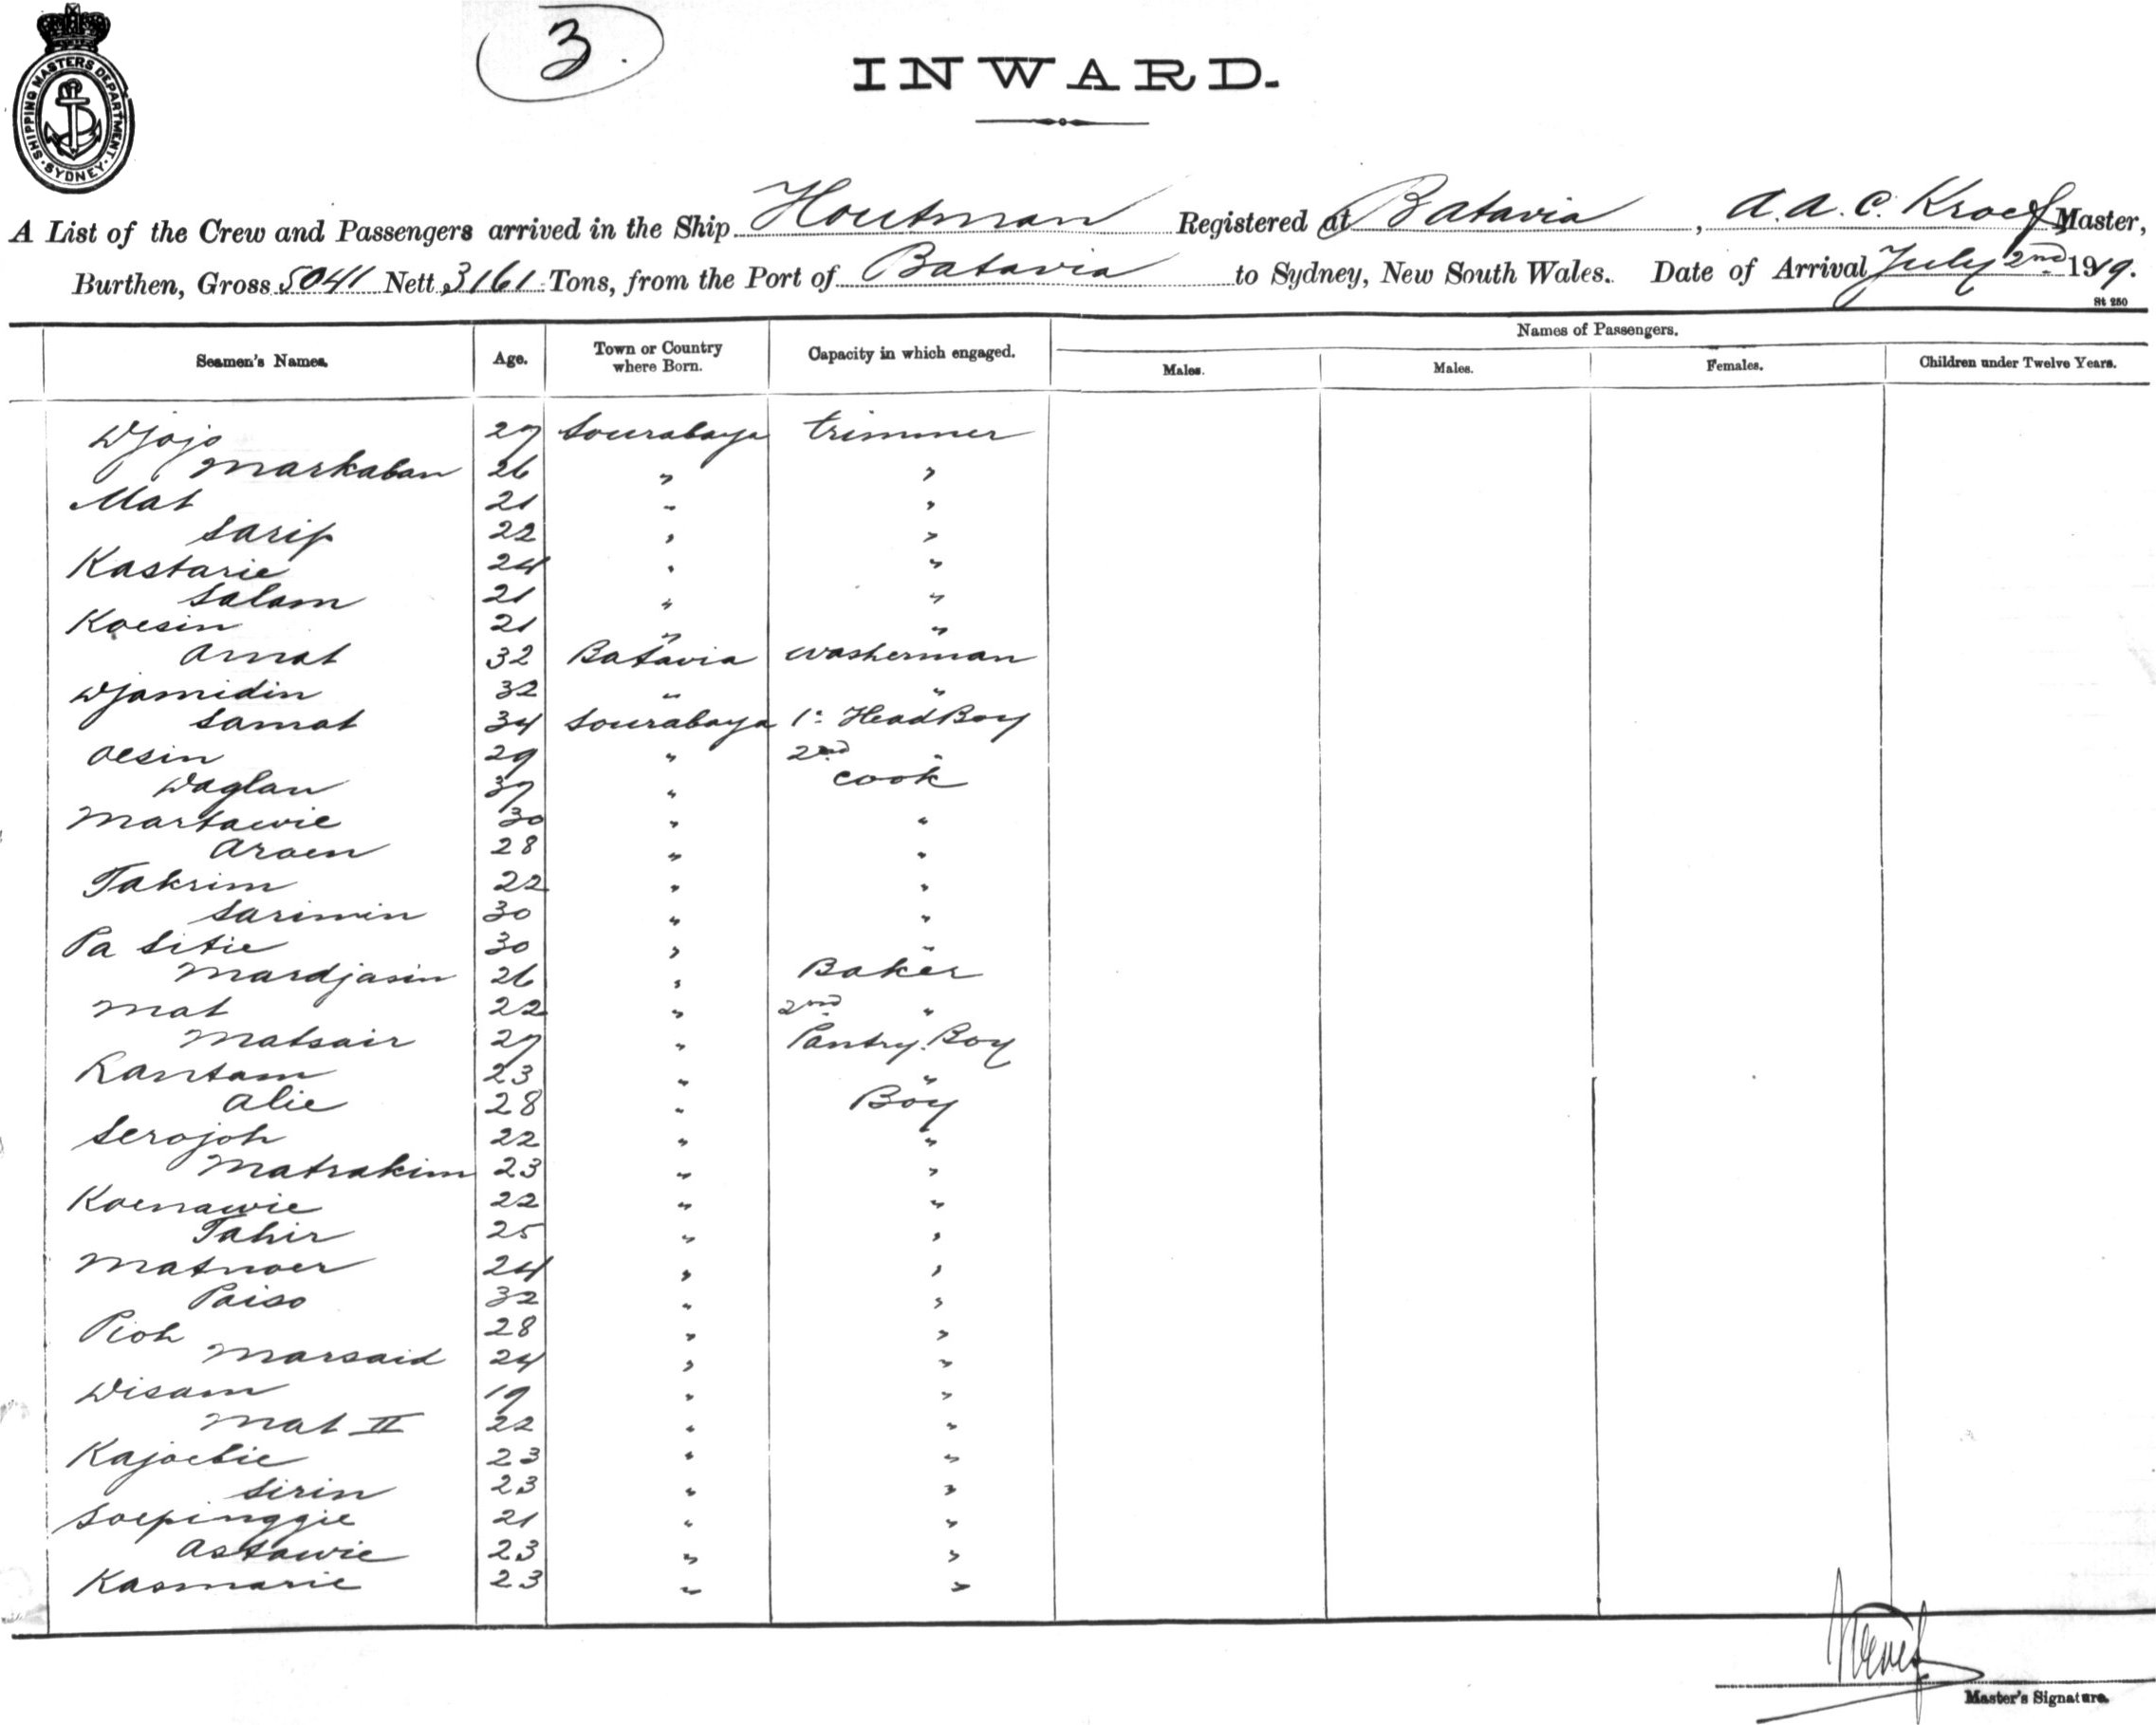 3.
INWARD.
SHIPPING MASTERS DEPARTMENT. SYDNEY
A List of the Crew and Passengers arrived in the Ship Houtman Registered at Batavia, A. A. C. Kroef Master,
Burthen, Gross 5041 Nett 3161 Tons, from the Port of Batavia to Sydney, New South Wales. Date of Arrival July 2nd 1919.
St 250
Names of Passengers.
Seamen's Names. Age. Town or Country where Born. Capacity in which engaged. Males. Males. Females. Children under Twelve Years.
Djojo 27 Sourabaya trimmer
Markaban 26 " "
Mat 21 " "
Sarip 22 " "
Kastarie 24 " "
Salam 21 " "
Koesin 21 " "
Amat 32 Batavia washerman
Djamidin 32 " "
Samat 34 Sourabaya 1e HeadBoy
Oesin 29 " 2nd "
Waglan 37 " cook
Martawie 30 " "
Aroen 28 " "
Takrim 22 " "
Sarimin 30 " "
Pa Sitie 30 " "
Mardjasin 26 " Baker
Mat 22 " 2nd "
Matsair 27 " Pantry Boy
Rantam 23 " "
Alie 28 " Boy
Serojoh 22 " "
Matrakim 23 " "
Koenawie 22 " "
Tahir 25 " "
Matnoer 24 " "
Paiso 32 " "
Pioh 28 " "
Marsaid 24 " "
Wisam 19 " "
Mat II 22 " "
Kajoebie 23 " "
Sirin 23 " "
Soepinggie 21 " "
Astawie 23 " "
Kasmarie 23 " "
Master's Signature.